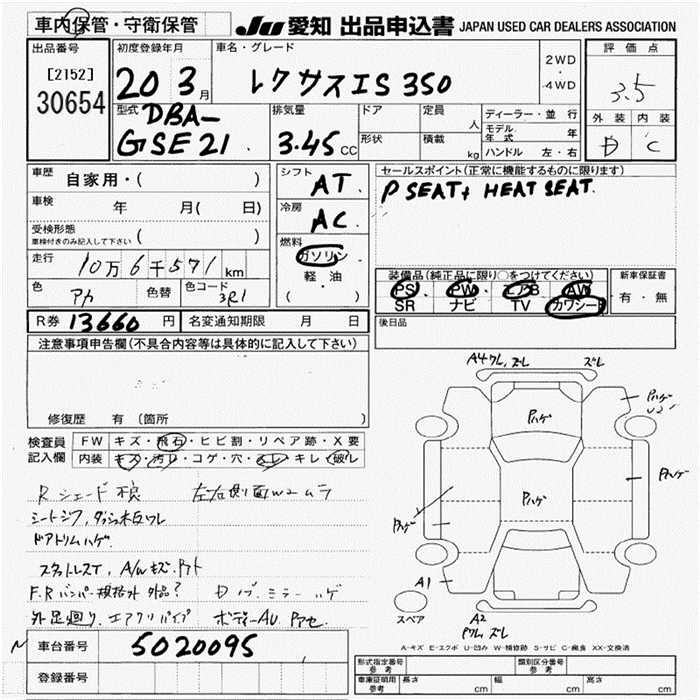 車内保管・守衛保管
JU 愛知 出品申込書 JAPAN USED CAR DEALERS ASSOCIATION
出品番号
[2152]
30654
初度登録年月
20 3月
車名・グレード
レクサスIS 350
2WD
・
4WD
評価点
3.5
外装 内装
D C
型式
DBA-
GSE21
排気量
3.45 CC
ドア
形状
定員
人
積載
kg
ディーラー・並行
モデル年式 年
ハンドル 左・右
車歴
自家用・( )
車検 年 月( 日)
受検形態
車検付きのみ記入して下さい ( )
走行
10万6千571 km
色
アカ
色替
色コード
3R1
シフト
AT
冷房
AC
燃料
ガソリン
軽・油
( ・ )
セールスポイント(正常に機能するものに限ります)
P SEAT+ HEAT SEAT.
装備品(純正品に限り○をつけてください)
PS PW エアB AW
SR ナビ TV カワシート
新車保証書
有・無
後日品
R券 13660 円
名変通知期限 月 日
注意事項申告欄(不具合内容等は具体的に記入して下さい)
修復歴 有 (箇所 )
検査員記入欄
FW キズ・飛石・ヒビ割・リペア跡・X要
内装 キズ・汚レ・コゲ・穴・スレ・キレ・破レ
Rシェード不良 左右側面W2ムラ
シートシワ,ダッシュ木目ワレ
ドアトリムハゲ
スタットレスT, A/Wキズ.
F.Rバンパー規格外 外品? ドアミラーハゲ
外足廻り.エアクリパイプ ボディーAU
A4ワレ,ズレ ズレ
Pハゲ
Pハゲ
U2
Pハゲ
Pハゲ
Pハゲ
A1
スペア
A2
Pワレ ズレ
A-キズ E-エクボ U-凹み W-補修跡 S-サビ C-腐食 XX-交換済
車台番号
5020095
登録番号
形式指定番号 参考
類別区分番号 参考
車庫証明用 参考
長さ cm
幅 cm
高さ cm